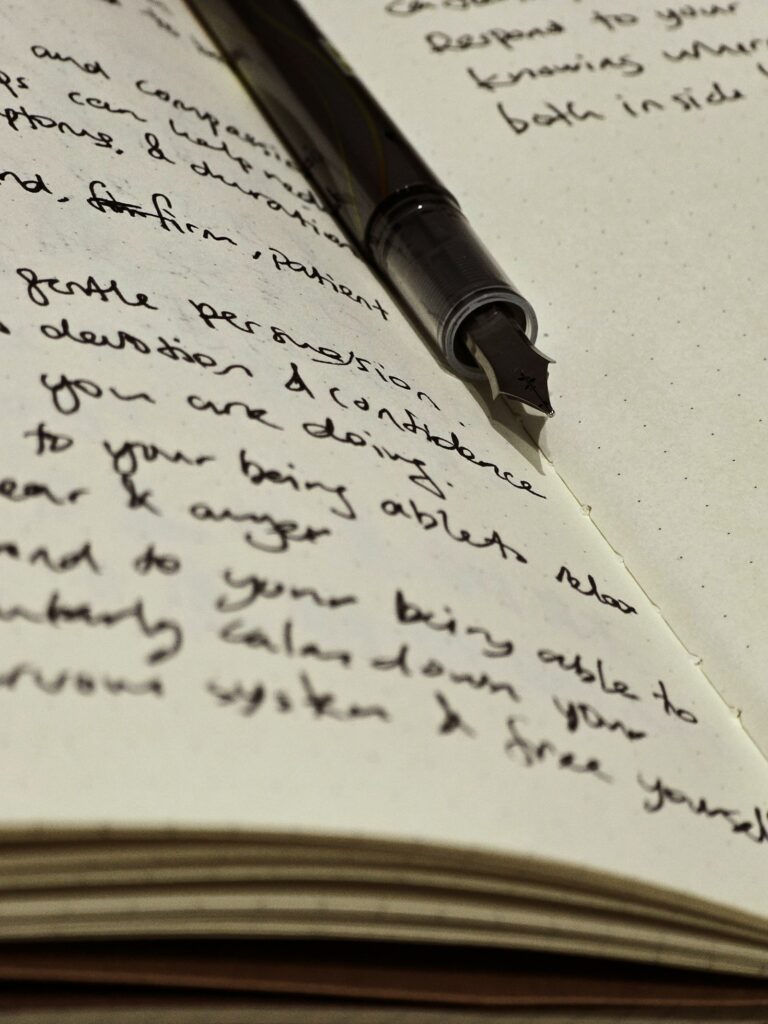 and compassion
can help redu
& duration
firm, patient
gentle persuasion.
devotion & confidence
you are doing.
to your being able to relax
& anger
to your being able to
calm down your
system & free yourself
Respond to your
knowing where
both inside